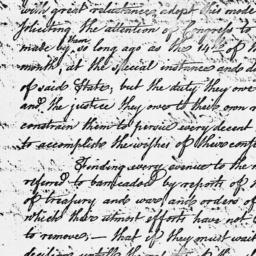 with great reluctance adopt this mode
soliciting the attention of Congress to
made by them, so long ago as the 14th of th
month, at the special instance and d
of said State; but the duty they owe
and the justice they owe to their own
constrain them to pursue every decent
to accomplish the wishes of their cons
Finding every avenue to the
referred to barricaded by reports of
of treasury and war and orders of
which their utmost efforts have not
to remove; — that if they must wait